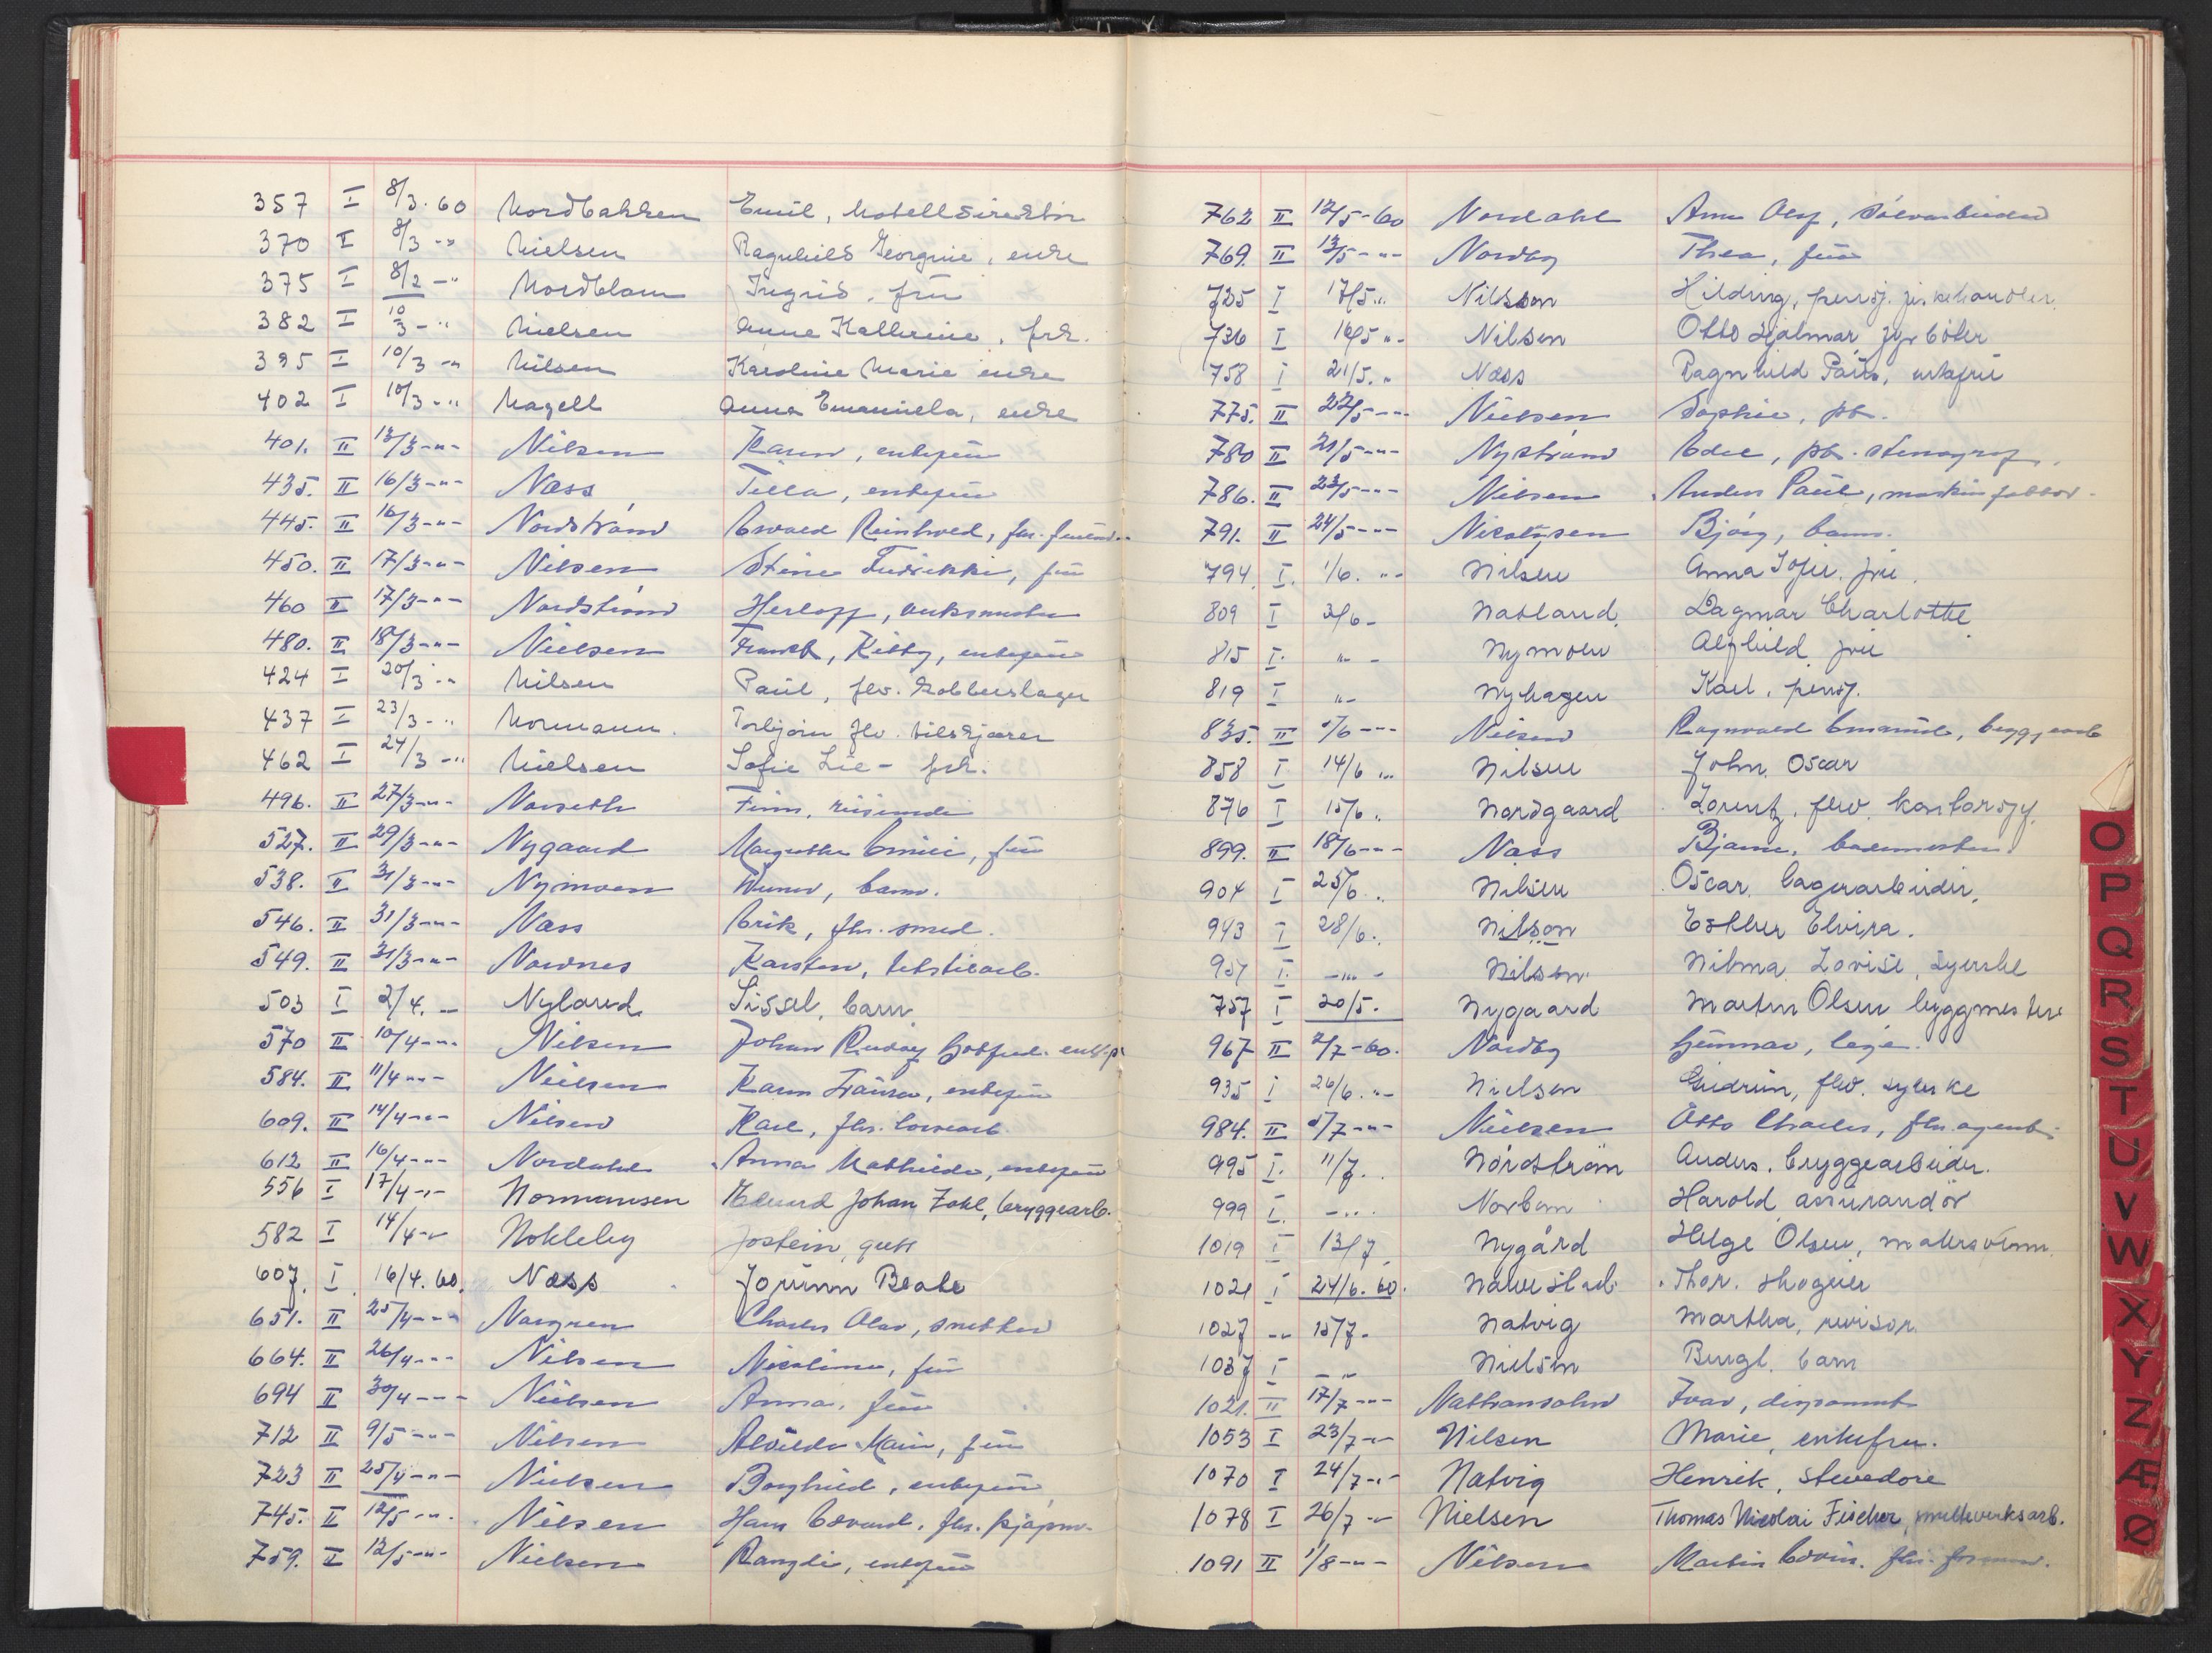 357 I 8/3.60 Nordbakken Emil, Hotelldirektør
370 I 8/3 -" Nielsen Ragnhild Georgine, enke
375 I 8/2 -" Nordblom Ingrid, frü
382 I 10/3 -" Nielsen Anne Kathrine, frk.
395 I 10/3 -" Nilsen Karoline Marie enke
402 I 10/3 -" Nagell Anna Emanuela, enke
401. II 13/3-"- Nilsen Karen, enkefrü
435. II 16/3-"- Næss Tilla, enkefrü
445. II 16/3-"- Nordstrand Reinhold, fhv.
450. II 17/3-"- Nilsen Stine Fredrikke, frü
460 II 17/3-"- Nordstrand Herloff,
480. II 18/3-"- Nielsen Kitty, enkefrü
424 I 20/3 -" Nilsen Paül, flv. Kobberslager
437 I 23/3 -" Normann. Torbjørn flv. bilskjører
462 I 24/3 -" Nielsen Sofie Lie - frk.
496. II 27/3-"- Norseth Finn, reisende
527. II 29/3-"- Nygaard Margrethe Emilie, frü
538. II 31/3-"- Nymoen barn.
546. II 31/3-"- Næss Erik, fhv. smed.
549. II 31/3-"- Nordnes Karsten, tekstilarb.
503 I 2/4. -" Nyland Sissel, barn
570 II 10/4-"- Nilsen Johan Gotfred.
584. II 11/4-"- Nielsen Karen Laura, enkefrü
609. II 14/4-"- Nilsen Karl, fhv.
612 II 16/4-"- Nordahl Anna Mathilde, enkefrü
556 I 17/4-"- Normansen Edvard Johan Zahl, bryggearb.
582 I 14/4-" Nokleby Jostein, gutt
607. I 16/4.60. Næss Jorünn Beate
651. II 25/4-"- Norgren Charles Olav, snekker
664. II 26/4-"- Nilsen Nicoline, frü
694 II 30/4-"- Nielsen Anna, frü
712 II 9/5-"- Nilsen Alvilde Marie, frü
723 II 25/4-"- Nielsen Borghild, enkefrü
745. II 12/5-"- Nilsen Hans Edvard, fhv. kjøpm.
759. II 12/5-"- Nielsen Rangli, enkefrü
762 II 12/5-60 Nordahl Arne Olaf, sølvarbeider
769. II 13/5-"- Nordby Thea, frü
725 I 17/5." Nilsson Hilding, pensj.
736 I 16/5 "- Nilsen Otto Hjalmar,
758 I 21/5." Næss Ragnhild Paüs, enkefrü
775. II 22/5-"- Nielsen Sophie, frk.
780 II 21/5-"- Nystrøm Edle, frk. stenograf.
786. II 23/5-"- Nilsen Anders Paül,
791. II 24/5-"- Nicolaysen Bjørg, barn.
794. I. 1/6. "- Nilsen Anna Sofie, frü.
809 I 3/6- Natland. Dagmar Charlotte
815 I. "- Nymoen Alfhild frü
819 I "- Nyhagen Karl, pensj.
835. II 7/6-"- Nilsen Ragnvald Emanuel, bryggearb
858 I 14/6 " Nilsen John, Oscar
876 I 15/6 " Nordgaard Lorentz, flv. kontorsjef.
899. II 18/6-"- Næss Bjarne, bademester
904 I 25/6 " Nilsen Oscar, lagerarbeider.
943 I 28/6." Nilson Esther Elvira.
957 I. -"- Nilsen Nilma Lovise, syerske
757 I 20/5. Nygaard Martin Olsen byggmester
967 II 2/7-60. Nordby Günnar, lege.
935 I 26/6. "- Nielsen Gudrün, flv. syerske
984. II 5/7-"- Nielsen Otto Charles, fhv. agent
995 I. 11/7. Nordstrøm Anders, bryggearbeider.
999 I. -"- Norbom Harold, assürandør
1019 I 13/7 Nygård Helge Olsen, malersvenn.
1021 I 24/6.60. Navestad Thor. skogeier
1027 -"- 15/7- Natvig Martha, revisor
1037 I -"- Nielsen barn
1021. II 17/7-"- Nathansohn Ivar, disponent
1053 I 23/7-" Nilsen Marie, enkefru.
1070 I 24/7-"- Natvig Henrik, stuedore
1078 I 26/7-" Nielsen Thomas Nicolai Fischer, smelteverksarb.
1091 II 1/8-"- Nilsen Martin Edvin. fhv. formann.
O
P
Q
R
S
T
U
V
W
X
Y
Z
Æ
Ø